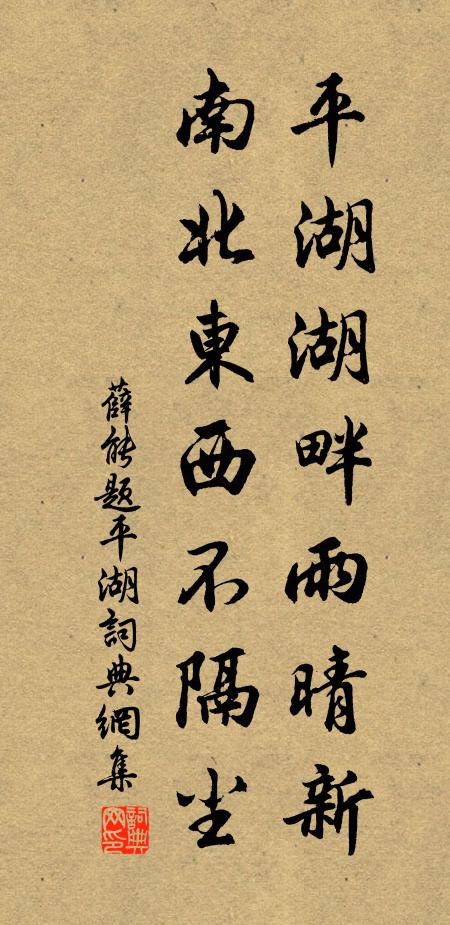 平湖湖畔雨晴新
南北東西不隔尘
薛能题平湖詞典網集
詞典網印